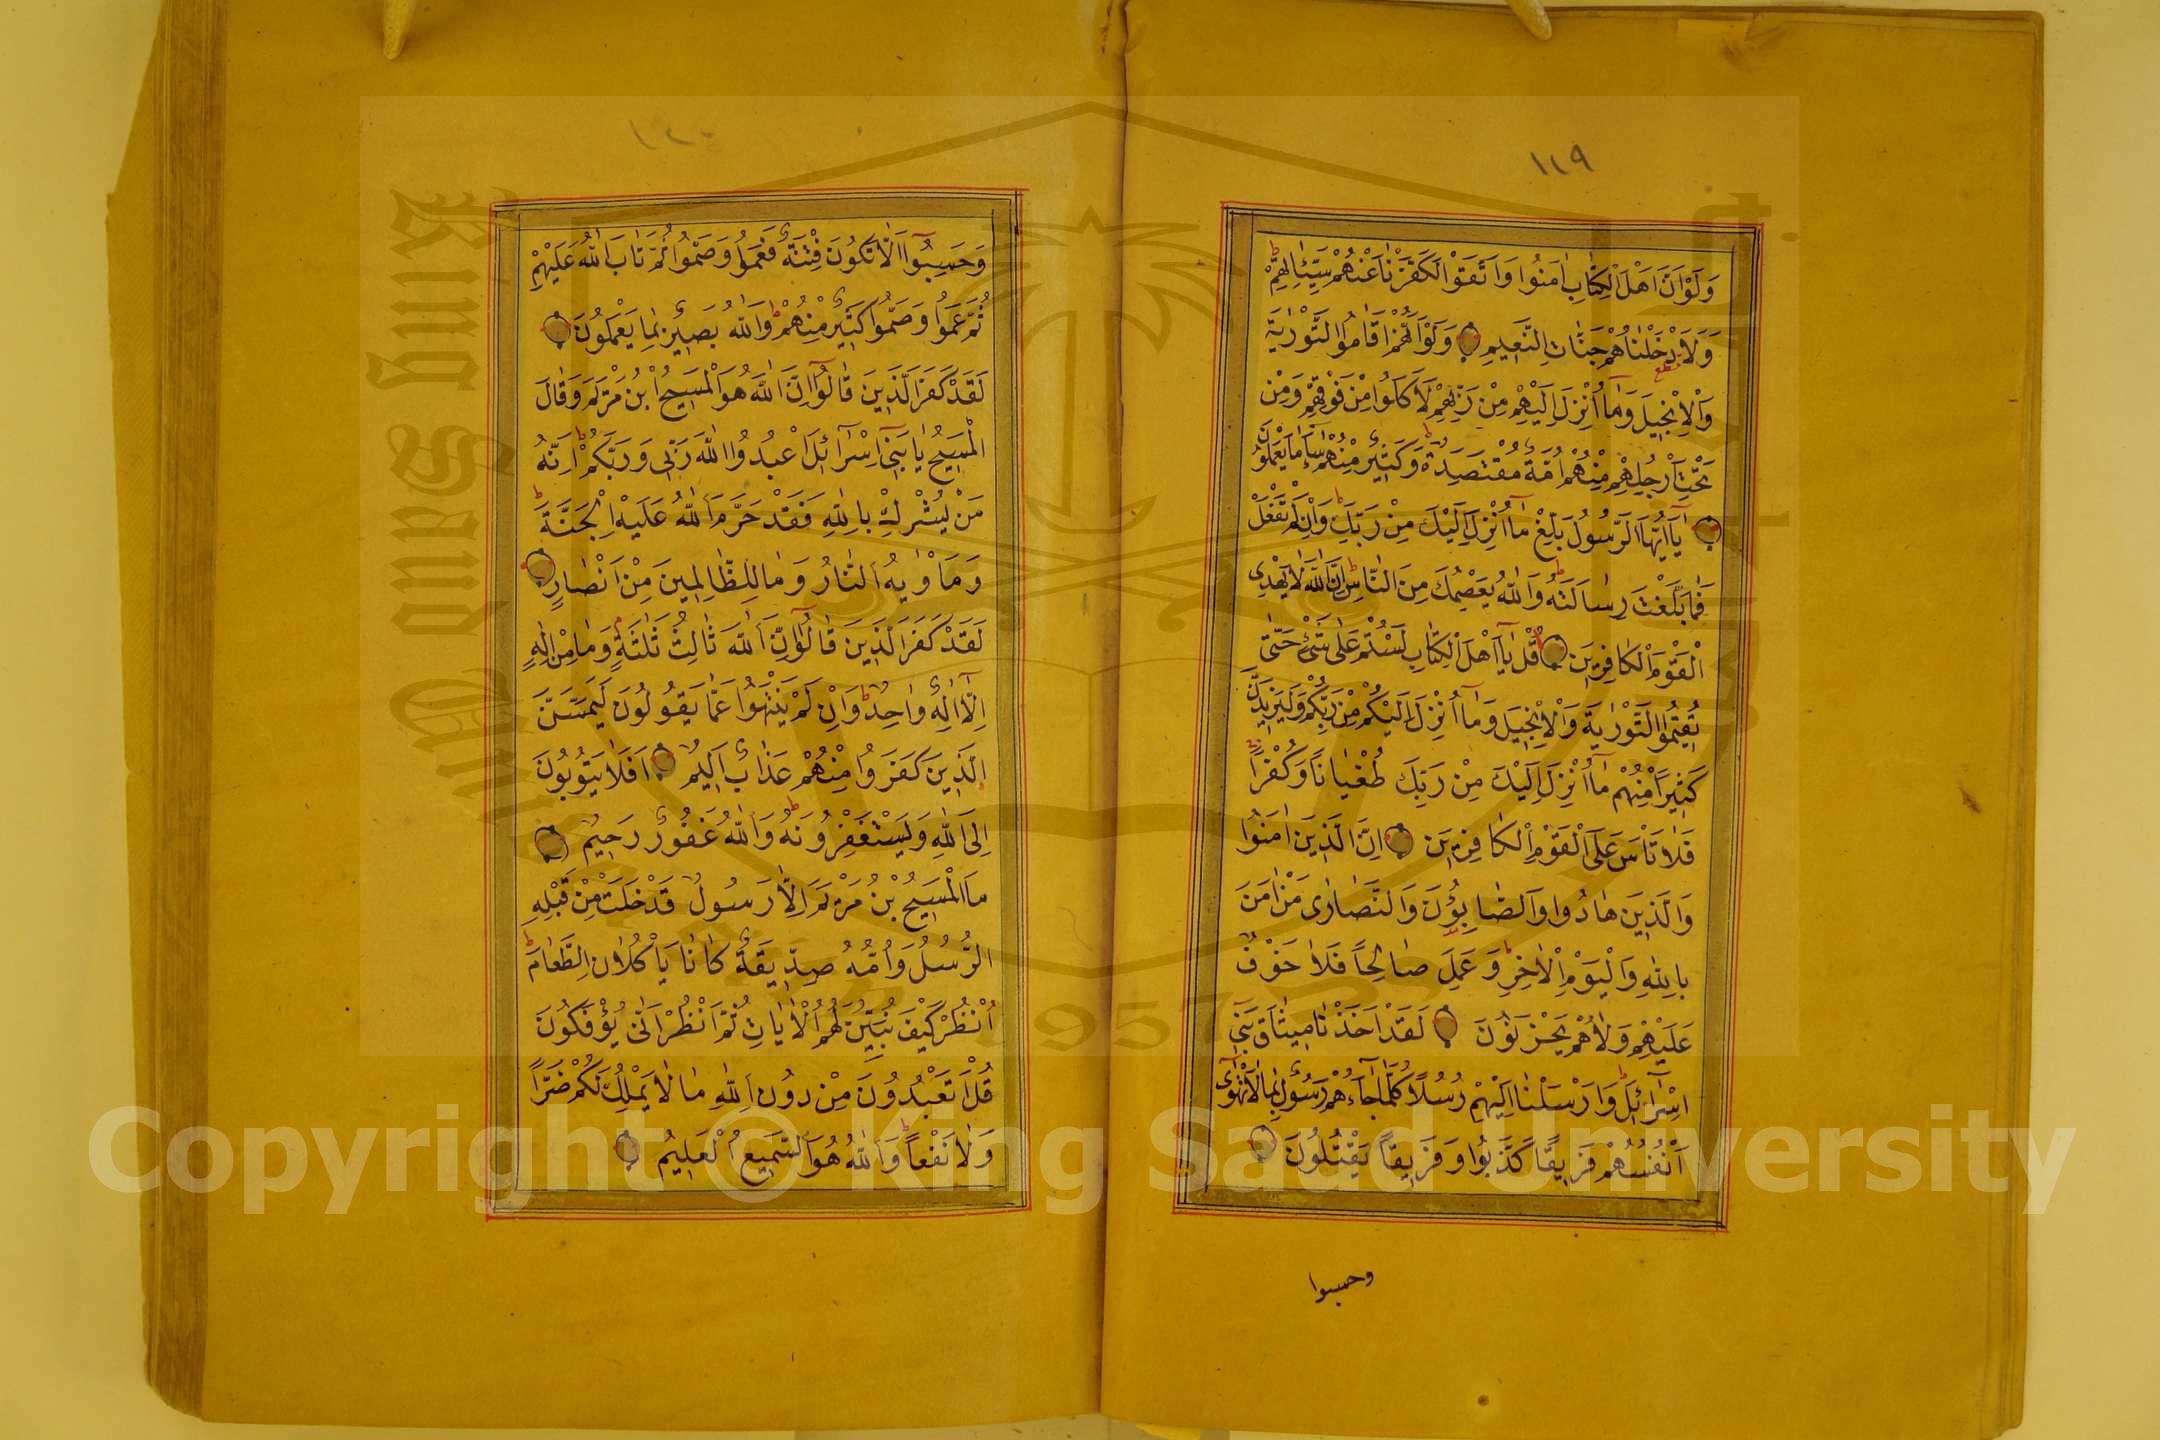 ١١٩
وَلَوْ اَنَّ اَهْلَ الْكِتَابِ اٰمَنُوا وَاتَّقَوْا لَكَفَّرْنَا عَنْهُمْ سَيِّئَاتِهِمْ
وَلَاَدْخَلْنَاهُمْ جَنَّاتِ النَّعِيمِ وَلَوْ اَنَّهُمْ اَقَامُوا التَّوْرٰيةَ
وَالْاِنْجِيلَ وَمَٓا اُنْزِلَ اِلَيْهِمْ مِنْ رَبِّهِمْ لَاَكَلُوا مِنْ فَوْقِهِمْ وَمِنْ
تَحْتِ اَرْجُلِهِمْ مِنْهُمْ اُمَّةٌ مُقْتَصِدَةٌ وَكَثِيرٌ مِنْهُمْ سَٓاءَ مَا يَعْمَلُونَ
يَٓا اَيُّهَا الرَّسُولُ بَلِّغْ مَٓا اُنْزِلَ اِلَيْكَ مِنْ رَبِّكَ وَاِنْ لَمْ تَفْعَلْ
فَمَا بَلَّغْتَ رِسَالَتَهُ وَاللّٰهُ يَعْصِمُكَ مِنَ النَّاسِ اِنَّ اللّٰهَ لَا يَهْدِى
الْقَوْمَ الْكَافِرِينَ قُلْ يَٓا اَهْلَ الْكِتَابِ لَسْتُمْ عَلٰى شَىْءٍ حَتّٰى
تُقِيمُوا التَّوْرٰيةَ وَالْاِنْجِيلَ وَمَٓا اُنْزِلَ اِلَيْكُمْ مِنْ رَبِّكُمْ وَلَيَزِيدَنَّ
كَثِيرًا مِنْهُمْ مَٓا اُنْزِلَ اِلَيْكَ مِنْ رَبِّكَ طُغْيَانًا وَكُفْرًا
فَلَا تَاْسَ عَلَى الْقَوْمِ الْكَافِرِينَ اِنَّ الَّذِينَ اٰمَنُوا
وَالَّذِينَ هَادُوا وَالصَّابِؤُنَ وَالنَّصَارٰى مَنْ اٰمَنَ
بِاللّٰهِ وَالْيَوْمِ الْاٰخِرِ وَعَمِلَ صَالِحًا فَلَا خَوْفٌ
عَلَيْهِمْ وَلَا هُمْ يَحْزَنُونَ لَقَدْ اَخَذْنَا مِيثَاقَ بَنِٓى
اِسْرَٓائِلَ وَاَرْسَلْنَا اِلَيْهِمْ رُسُلًا كُلَّمَا جَٓاءَهُمْ رَسُولٌ بِمَا لَا تَهْوٰٓى
اَنْفُسُهُمْ فَرِيقًا كَذَّبُوا وَفَرِيقًا يَقْتُلُونَ
وحسبوا
١٢٠
وَحَسِبُٓوا اَلَّا تَكُونَ فِتْنَةٌ فَعَمُوا وَصَمُّوا ثُمَّ تَابَ اللّٰهُ عَلَيْهِمْ
ثُمَّ عَمُوا وَصَمُّوا كَثِيرٌ مِنْهُمْ وَاللّٰهُ بَصِيرٌ بِمَا يَعْمَلُونَ
لَقَدْ كَفَرَ الَّذِينَ قَالُٓوا اِنَّ اللّٰهَ هُوَ الْمَسِيحُ ابْنُ مَرْيَمَ وَقَالَ
الْمَسِيحُ يَا بَنِٓى اِسْرَٓائِلَ اعْبُدُوا اللّٰهَ رَبِّى وَرَبَّكُمْ اِنَّهُ
مَنْ يُشْرِكْ بِاللّٰهِ فَقَدْ حَرَّمَ اللّٰهُ عَلَيْهِ الْجَنَّةَ
وَمَاْوٰيهُ النَّارُ وَمَا لِلظَّالِمِينَ مِنْ اَنْصَارٍ
لَقَدْ كَفَرَ الَّذِينَ قَالُٓوا اِنَّ اللّٰهَ ثَالِثُ ثَلٰثَةٍ وَمَا مِنْ اِلٰهٍ
اِلَّٓا اِلٰهٌ وَاحِدٌ وَاِنْ لَمْ يَنْتَهُوا عَمَّا يَقُولُونَ لَيَمَسَّنَّ
الَّذِينَ كَفَرُوا مِنْهُمْ عَذَابٌ اَلِيمٌ اَفَلَا يَتُوبُونَ
اِلَى اللّٰهِ وَيَسْتَغْفِرُونَهُ وَاللّٰهُ غَفُورٌ رَحِيمٌ
مَا الْمَسِيحُ بْنُ مَرْيَمَ اِلَّا رَسُولٌ قَدْ خَلَتْ مِنْ قَبْلِهِ
الرُّسُلُ وَاُمُّهُ صِدِّيقَةٌ كَانَا يَاْكُلَانِ الطَّعَامَ
اُنْظُرْ كَيْفَ نُبَيِّنُ لَهُمُ الْاٰيَاتِ ثُمَّ انْظُرْ اَنّٰى يُؤْفَكُونَ
قُلْ اَتَعْبُدُونَ مِنْ دُونِ اللّٰهِ مَا لَا يَمْلِكُ لَكُمْ ضَرًّا
وَلَا نَفْعًا وَاللّٰهُ هُوَ السَّمِيعُ الْعَلِيمُ
Copyright © King Saud University
King Saud University
1957